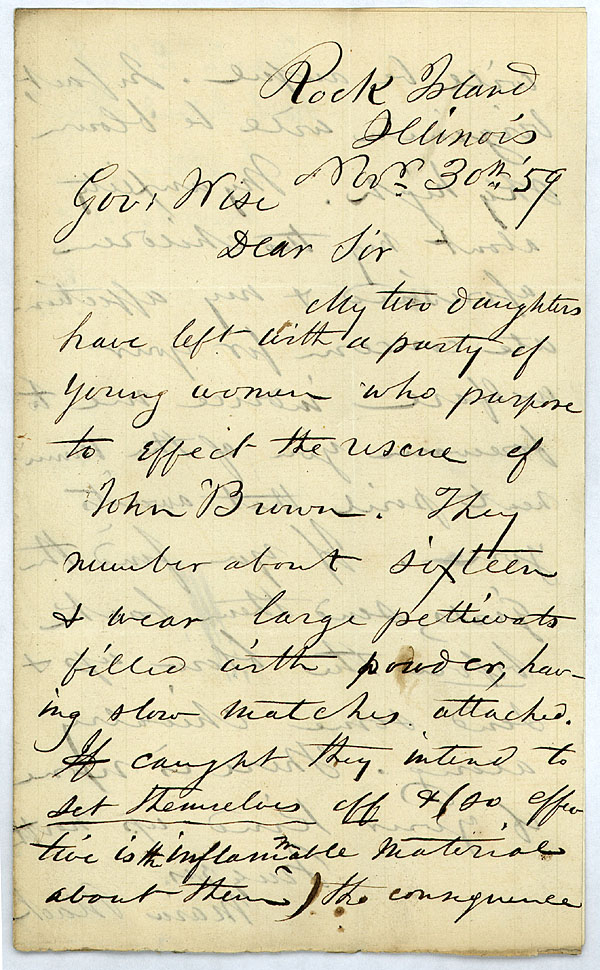 Rock Island
Illinois
Novr. 30th '59
Govr Wise
Dear Sir
My two daughters
have left with a party of
young women who purpose
to effect the rescue of
John Brown. They
number about sixteen
& wear large petticoats
filled with powder, hav-
ing slow matches attached.
If caught they intend to
set themselves off & (so effec
tive is the inflammable material
about them) the consequence